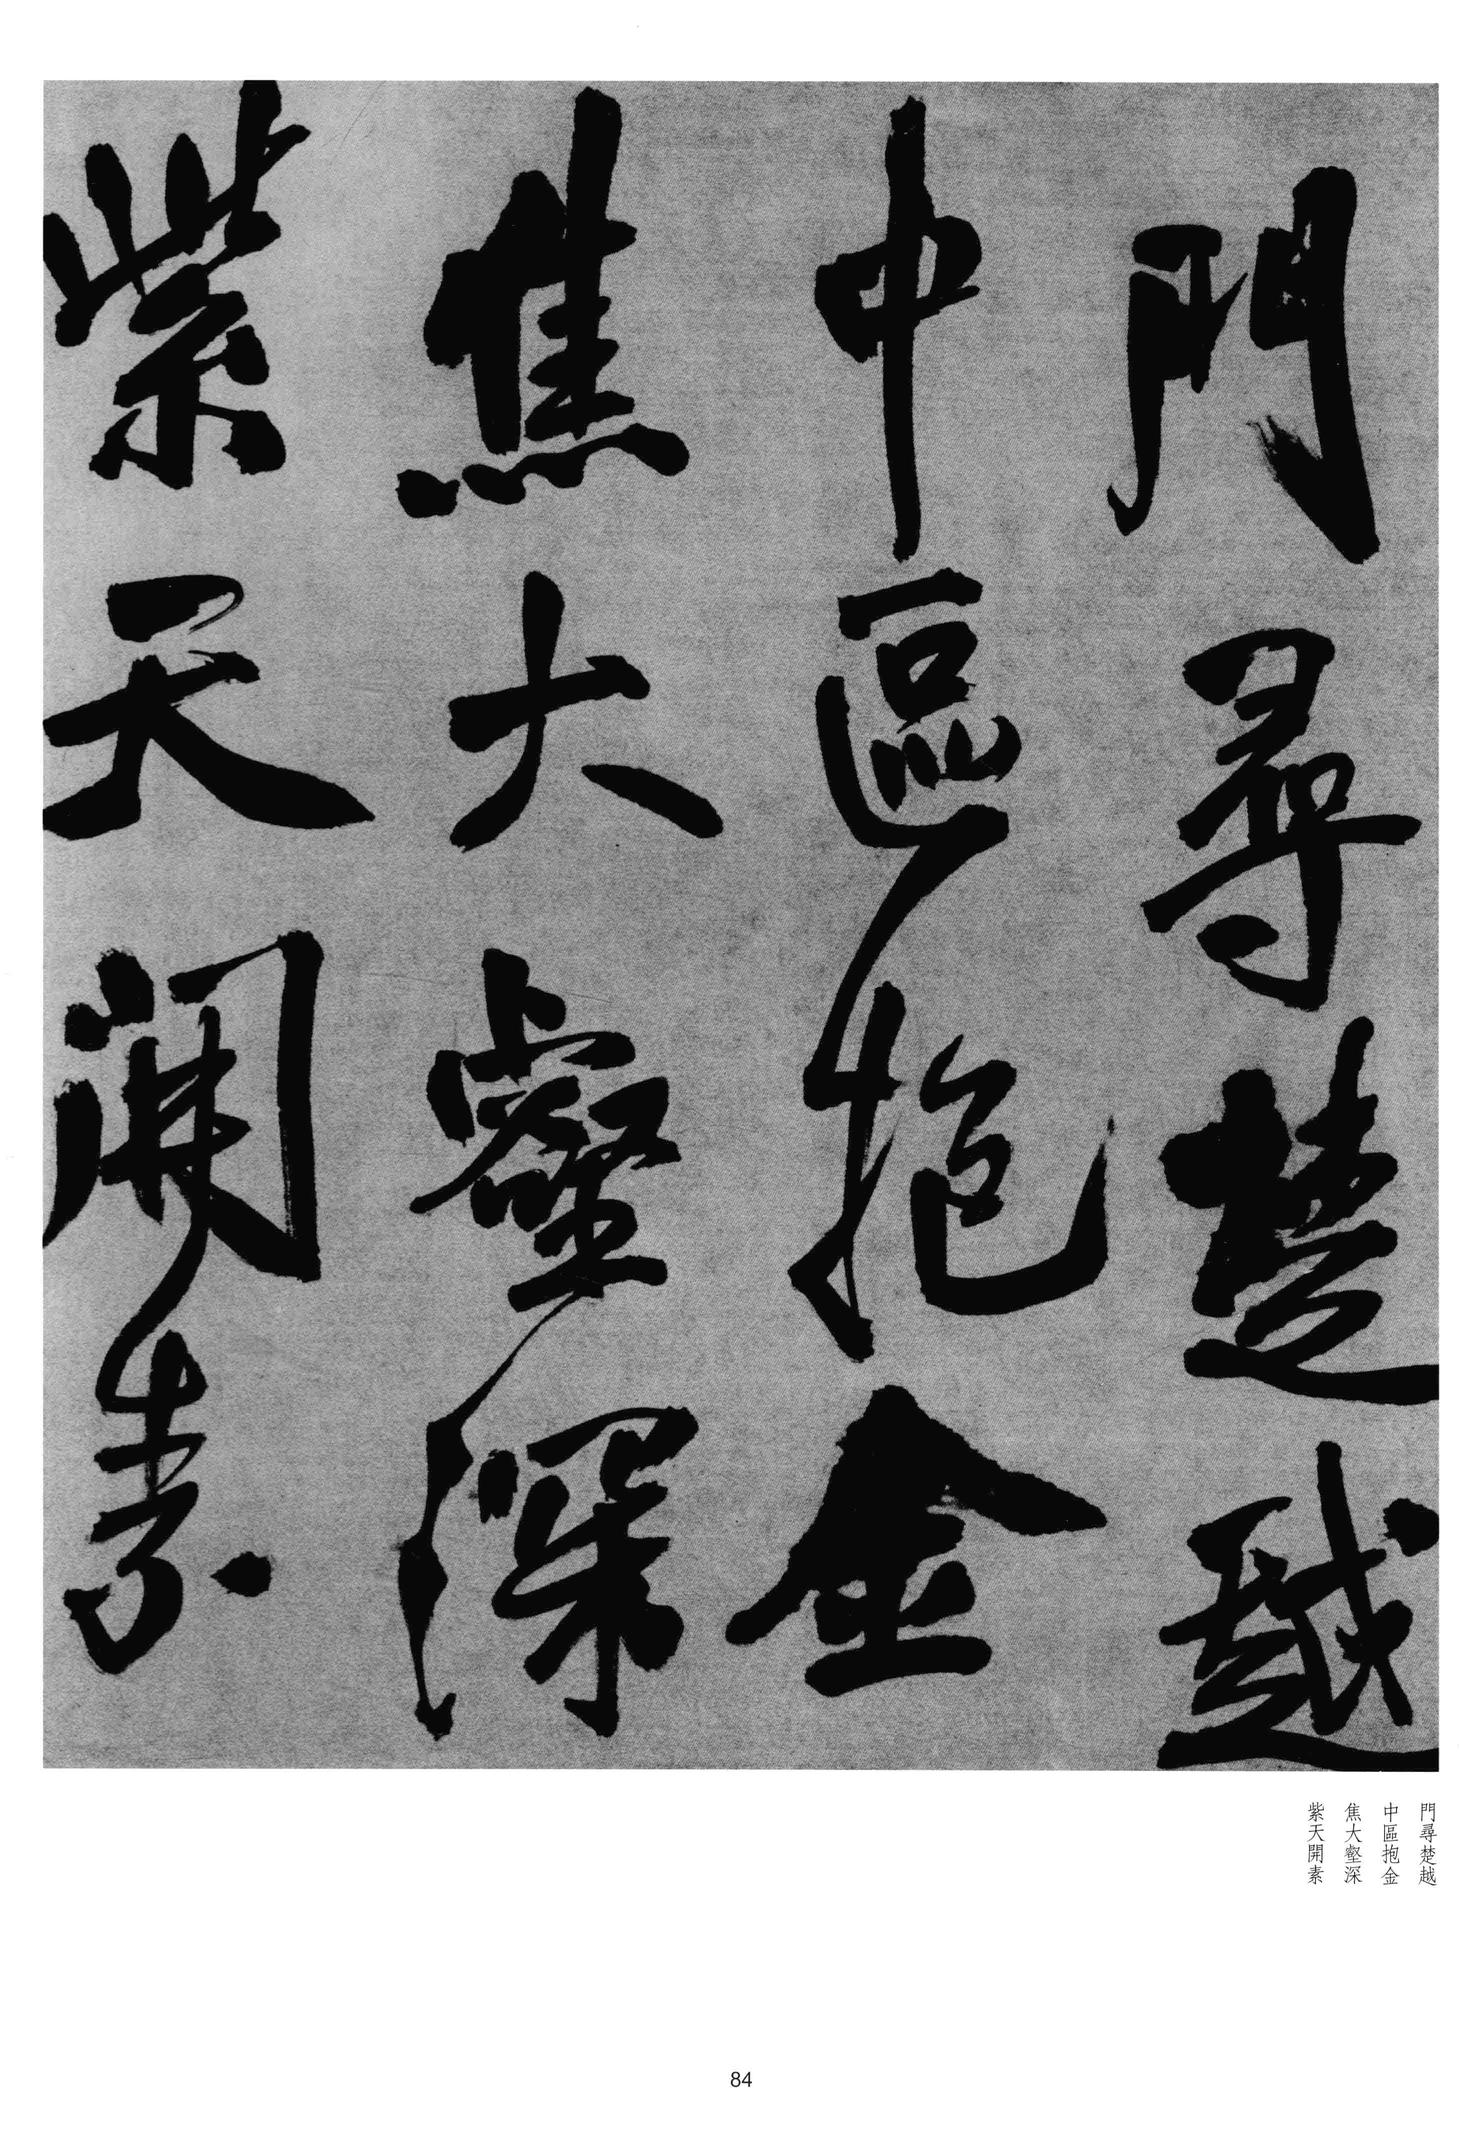 門尋楚越
中區抱金
焦大壑深
紫天開素
門尋楚越
中區抱金
焦大壑深
紫天開素
84